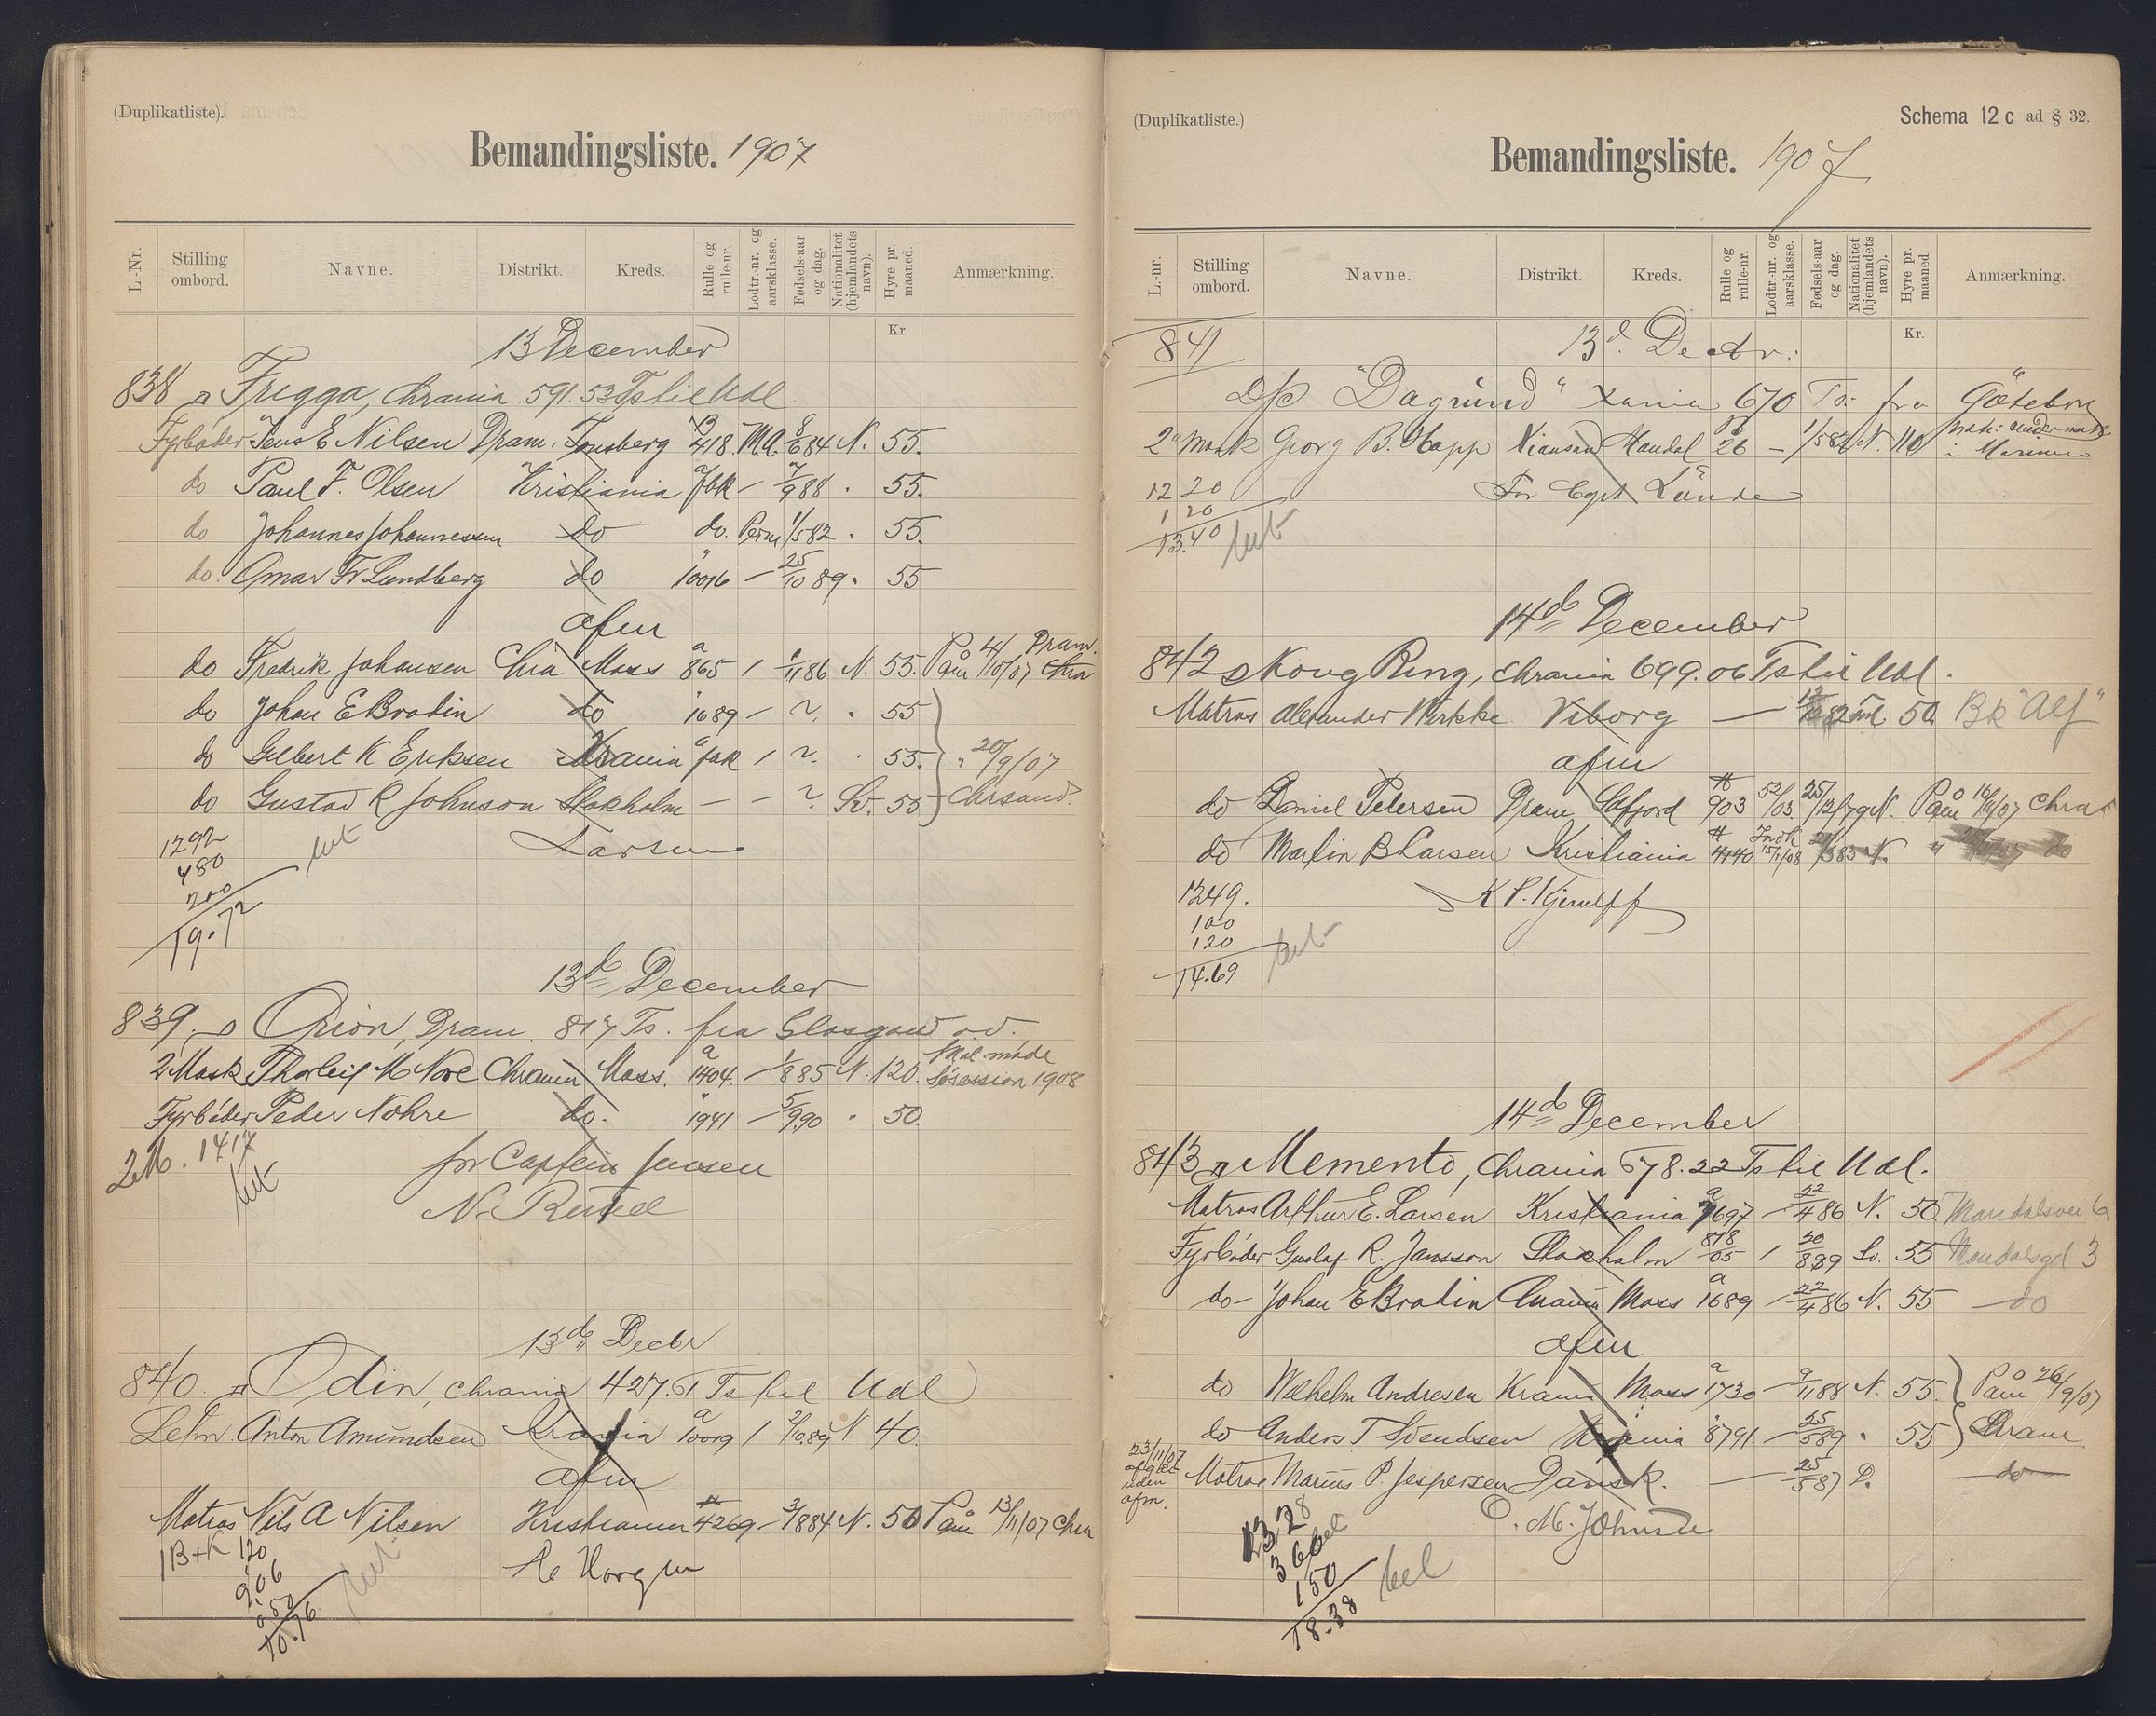 (Duplikatliste).
Bemandingsliste. 1907
L.-Nr. Stilling ombord. Navne. Distrikt. Kreds. Rulle og rulle-nr. Lodtr.-nr. og aarsklasse. Fødsels-aar og dag. Nationalitet (hjemlandets navn). Hyre pr. maaned. Anmærkning.
Kr.
13 December
838 Frigga, Chrania 591.53 Ts til Udl.
Fyrbøder Jens E Nilsen Dram. Tønsberg 418 M.A. 8/6 84 N. 55.
do Paul F. Olsen Kristiania 7/9 88 " 55.
do Johannes Johannessen do do. 1/5 82 " 55.
do. Omar Fr Lundberg do 10016 — 25/10 89 " 55
afm
do Fredrik Johansen Chia Moss a 865 / 1/11 86 N. 55. Paam 4/10/07 Dram. Chra
do Johan E Brodin do " 1689 — ? " 55
do Gilbert K Eriksen Krania / ? " 55. " 20/9/07
do Gustav R Johnson Stokholm — — ? Sv. 55 Chrsand.
1292
480
200
19.72
bet
Larsen
13de December
839. Orion, Dram. 817 Ts. fra Glasgow
2 Mask Thorleif M Nore Chrania Moss. a 1404. — 1/8 85 N. 120. Skal møde Søsession 1908
Fyrbøder Peder Nohre do. " 1941 — 5/9 90 " 50.
2 M. 1417
bet
for Captein Jensen
13de Decbr
840. Odin, Chrania 427.61 Ts til Udl
Letm. Anton Amundsen Krania a 10019 / N 40.
afm
Matros Nils A Nilsen Kristiania 4269 — 3/8 84 N. 50 Paam 13/11/07 Chra
1 B+K 120
9.06
050
10.76
bet
(Duplikatliste.)
Schema 12 c ad § 32.
Bemandingsliste. 1907
L.-nr. Stilling ombord. Navne. Distrikt. Kreds. Rulle og rulle-nr. Lodtr.-nr. og aarsklasse. Fødsels-aar og dag. Nationalitet (hjemlandets navn). Hyre pr. maaned. Anmærkning.
Kr.
841
13d. Decbr:
D/S "Dagrund" Xania 670 Ts: fra Göteborg
2n Mask Georg B. Happ Xiansand Mandal 26 — 1/5 82 N. 110 i Marinen
For Capt Lunde
12 20
1 20
13.40
bet
14de December
842 Kong Ring, Chrania 699.06 Ts til Udl.
Matros Alexander Wirkke Viborg — 82 Finl 50. Bk "Alf"
afm
do Daniel Petersen Dram. 903 52/03 25/12/79 N. Paam 16/11/07 Chra
do Martin B Larsen Kristiania 4140 15/1/08 83 N. " do
1249.
100
120
14.69
bet
K P. Kjerulff
14de December
843 Memento, Chrania 578.22 Ts til Udl.
Matros Arthur E. Larsen Kristiania a 7697 — 22/4 86 N. 50. Mandalsvei 6
Fyrbøder Gustaf R. Jansson Stokholm 818/05 / 20/8 89 Sv. 55 Mandalsgd 3
do — Johan E Brodin Chrania Moss a 1689 — 22/4 86 N. 55 — do
afm
do Wilhelm Andresen Krania Moss a 1730 — 9/11 88 N. 55. Paam 26/9/07
do Anders T Svendsen Krania " 8791. — 25/5 89 " 55 Dram
23/11/07 uden afm.
Matros Marius P. Jespersen Dansk. — 25/5 87 D. — do —
1328
360
150
18.38
bet